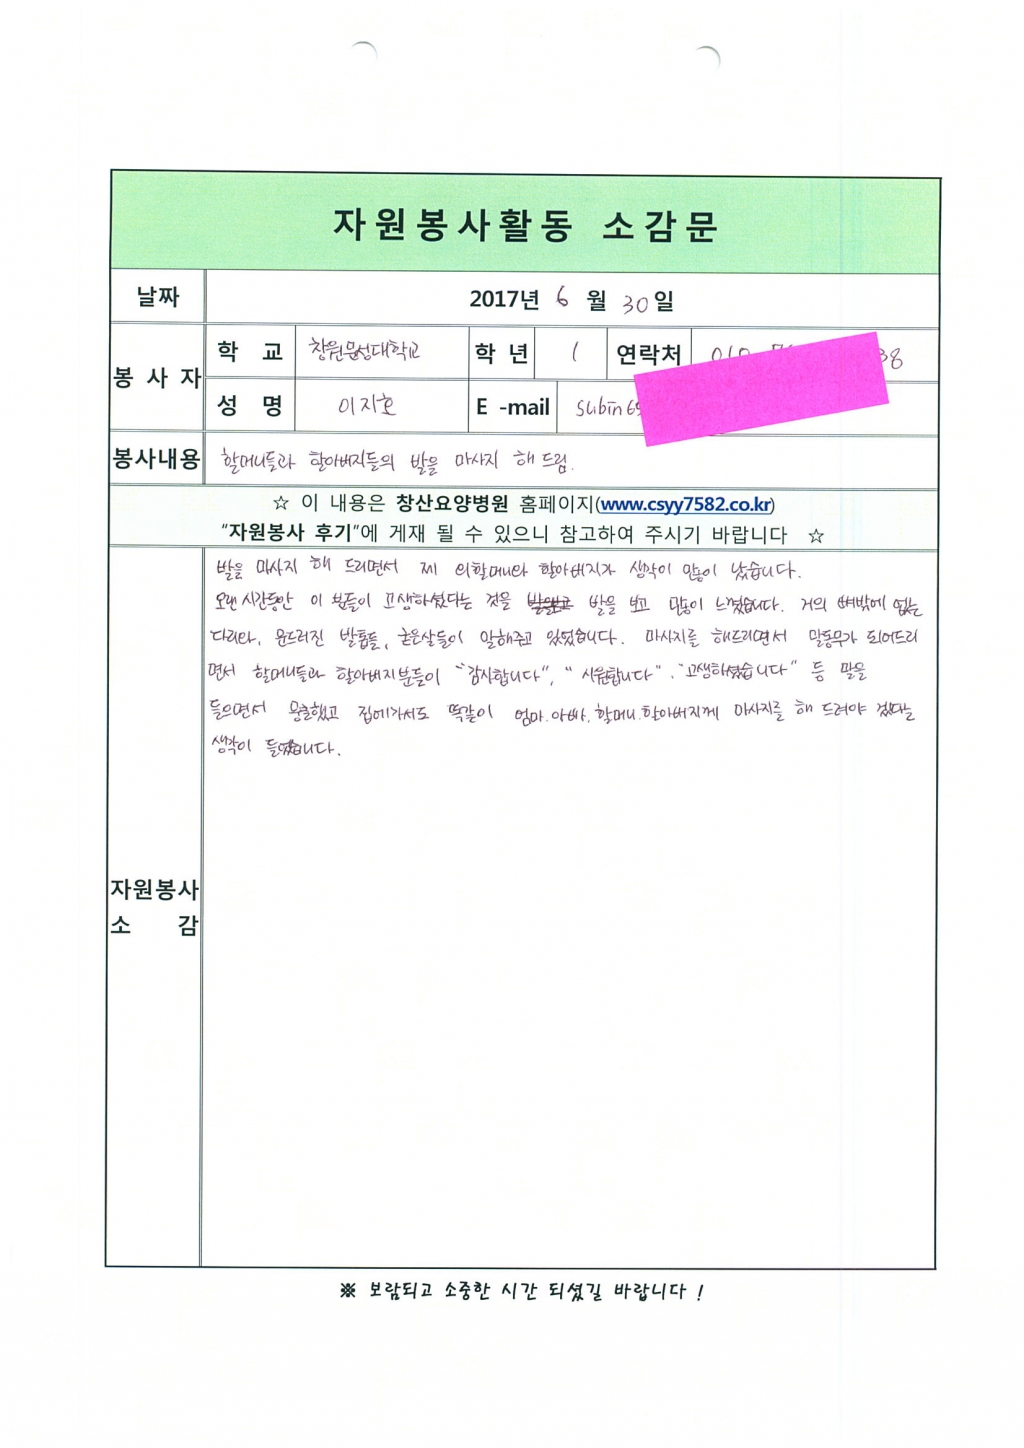 자원봉사활동 소감문
날짜 2017년 6 월 30일
봉 사 자 학 교 창원문성대학교 학 년 1 연락처 010 38
성 명 이지호 E -mail subin6
봉사내용 할머니들과 할아버지들의 발을 마사지 해 드림.
☆ 이 내용은 창산요양병원 홈페이지(www.csyy7582.co.kr)
"자원봉사 후기"에 게재 될 수 있으니 참고하여 주시기 바랍니다 ☆
발을 마사지 해 드리면서 제 외할머니와 할아버지가 생각이 많이 났습니다.
오랜 시간동안 이 분들이 고생하셨다는 것을 발을 보고 많이 느꼈습니다. 거의 뼈밖에 없는
다리나, 문드러진 발톱들, 굳은살들이 말해주고 있었습니다. 마사지를 해드리면서 말동무가 되어드리
면서 할머니들과 할아버지분들이 "감사합니다", "시원합니다", "고생하셨습니다" 등 말을
들으면서 뭉클했고 집에가서도 똑같이 엄마.아빠.할머니.할아버지께 마사지를 해 드려야 겠다는
생각이 들었습니다.
자원봉사
소 감
※ 보람되고 소중한 시간 되셨길 바랍니다 !